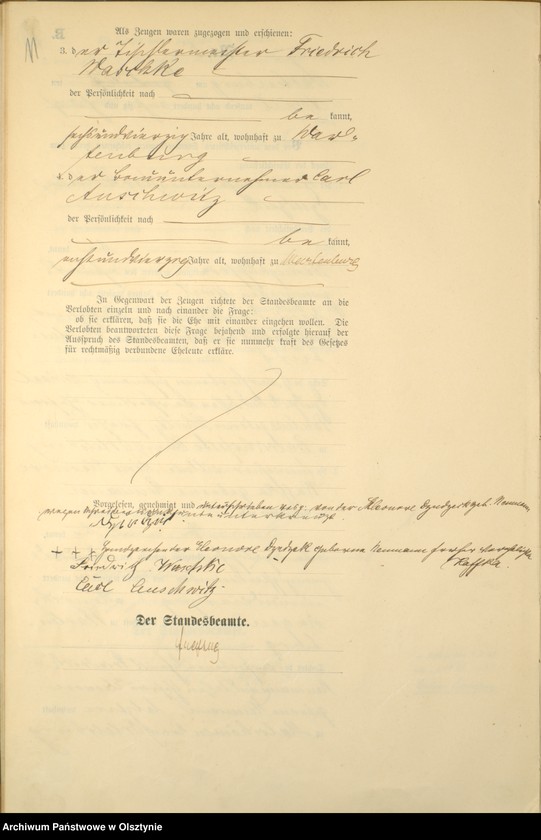 Als Zeugen waren zugezogen und erschienen:
3. der Tischlermeister Friedrich
Waschke
der Persönlichkeit nach
bekannt,
sechsundvierzig Jahre alt, wohnhaft zu War-
tenburg
4. der Bauunternehmer Carl
Auschwitz
der Persönlichkeit nach
bekannt,
Jahre alt, wohnhaft zu Wartenburg
In Gegenwart der Zeugen richtete der Standesbeamte an die
Verlobten einzeln und nach einander die Frage:
ob sie erklären, daß sie die Ehe mit einander eingehen wollen. Die
Verlobten beantworteten diese Frage bejahend und erfolgte hierauf der
Ausspruch des Standesbeamten, daß er sie nunmehr kraft des Gesetzes
für rechtmäßig verbundene Eheleute erkläre.
Vorgelesen, genehmigt und unterschrieben resp. von der Eleonore geb. Neumann
wegen
+ + + Handzeichen der Eleonore geborene Neumann früher
Friedrich Waschke
Carl Auschwitz.
Der Standesbeamte.
Archiwum Państwowe w Olsztynie